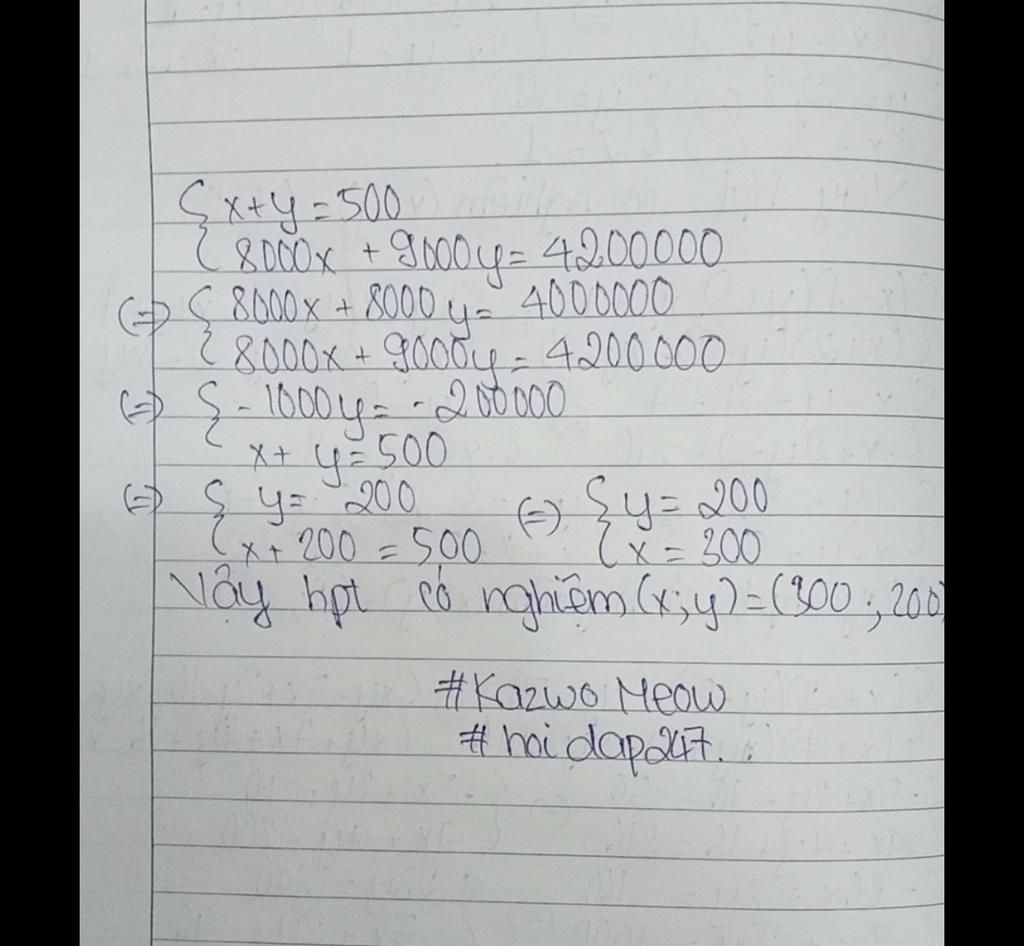 { x+y=500
{ 8000x + 9000y= 4200000
(=) { 8000x + 8000y= 4000000
{ 8000x + 9000y= 4200000
(=) { -1000y= -200000
x+ y=500
(=) { y= 200 (=) { y= 200
{ x+ 200 = 500 { x = 300
Vậy hpt có nghiệm (x;y)=(300; 200)
#Kazwo Meow
# hoi dap247..